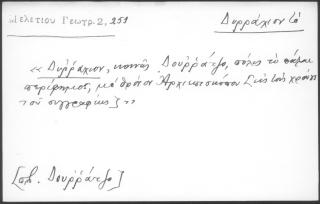 Μελετίου Γεωγρ. 2, 251
Δυρράχιον τὸ
«Δυῤῥάχιον, κοινῶς Δουῤῥάτζο, πόλις τὸ πάλαι
περίφημος, μὲ θρόνον Ἀρχιεπισκόπου [εἰς τοὺς χρόνους
τοῦ συγγραφέως]»
[πβ. Δουῤῥάτζο]